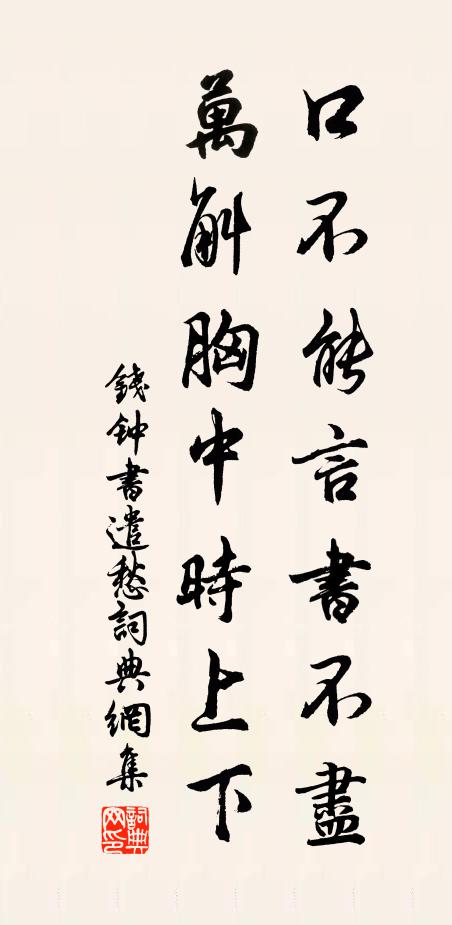 口不能言書不盡
萬斛胸中時上下
錢钟書遣愁詞典網集
詞典网印